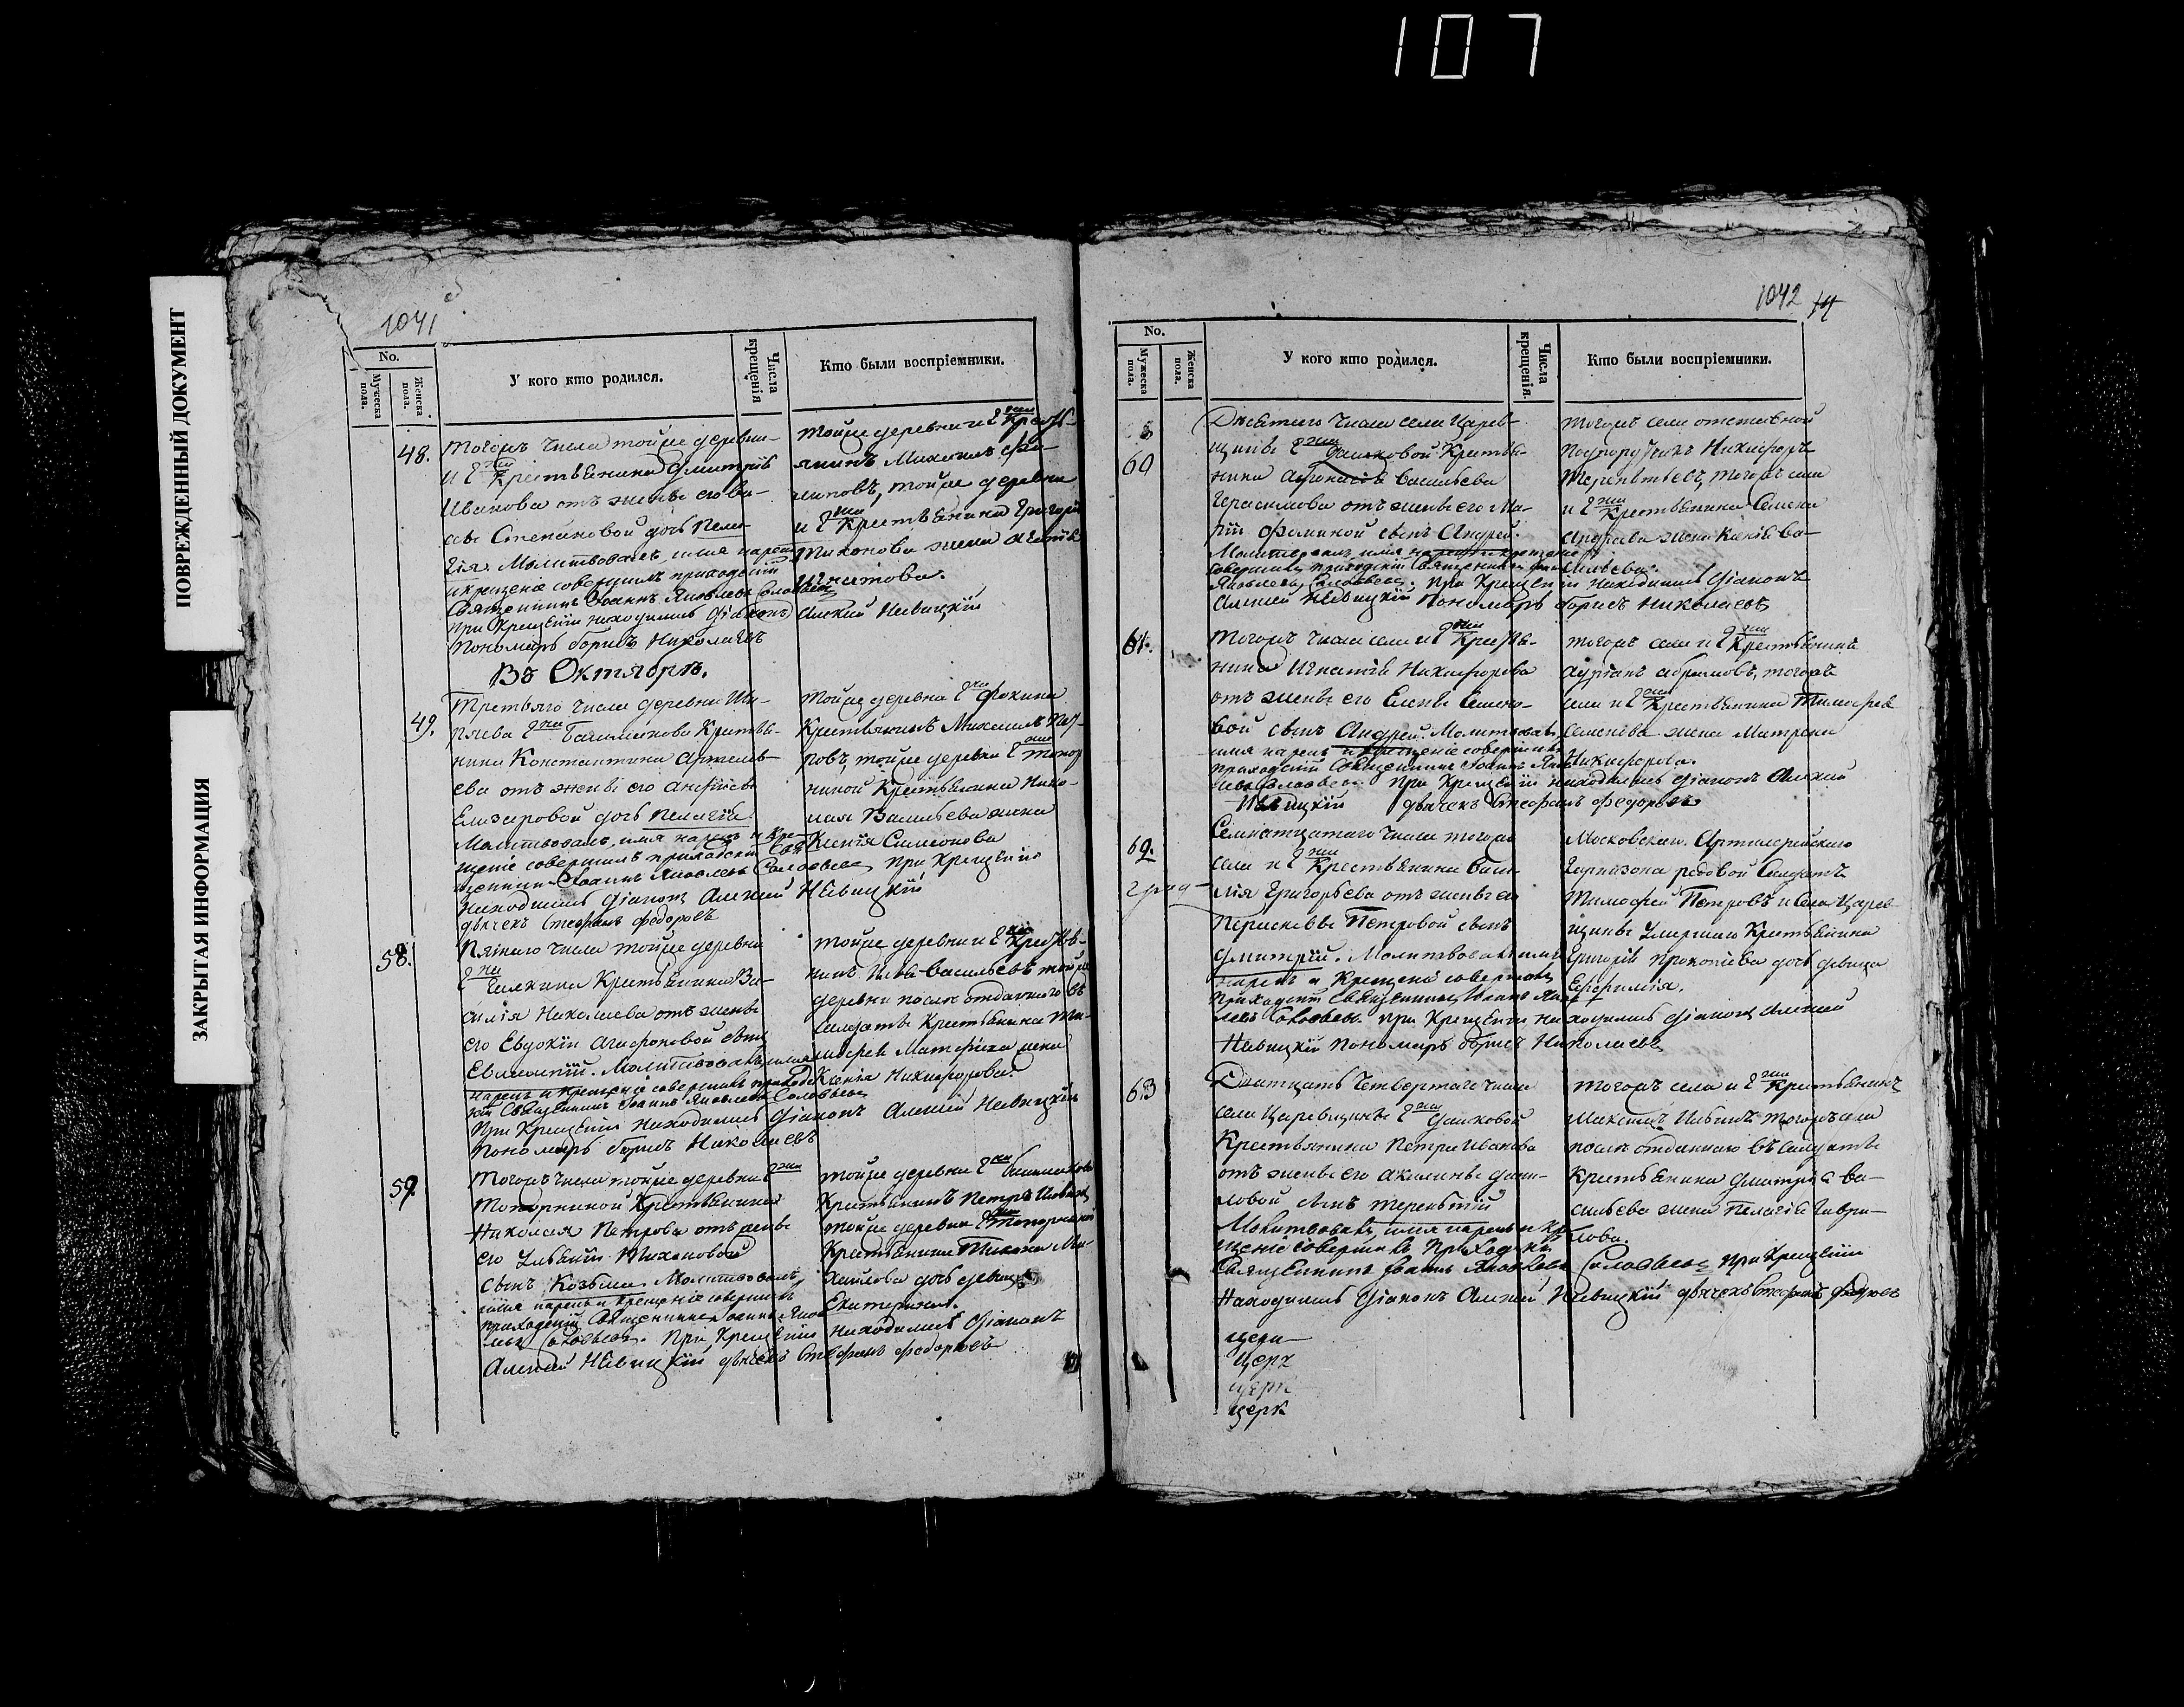 107
ПОВРЕЖДЕННЫЙ ДОКУМЕНТ
ЗАКРЫТАЯ ИНФОРМАЦИЯ
1041
No.
Мужеска пола.
Женска пола.
У кого кто родился.
Числа крещенія
Кто были воспріемники.
48.
Тогожъ числа тойже деревни
и Гжи Крестьянина Дмитрія
Иванова отъ жены его Ва-
сы Степановой дочь Пела-
гія. Молитвовалъ, имя нарекъ
и крещеніе совершилъ приходскій
Священникъ Іоаннъ Яковлевъ Соловьевъ
При Крещеніи находились Діаконъ Алексій Невицкій
Пономарь Борисъ Николаевъ
тойже деревни и Гжи Кресть-
янинъ Михаилъ
тойже деревни
и Гжи Крестьянина Григорія
Тихонова жена Агафія
Игнатова.
Въ Октябрѣ.
49.
Третьяго числа деревни Ши-
ряева Гжи Башмакова Крестья-
нина Константина Артемь-
ева отъ жены его Анфисы
Елизаровой дочь Пелагія
Молитвовалъ, имя нарекъ и кре-
щеніе совершилъ приходскій Свя-
щенникъ Іоаннъ Яковлевъ Соловьевъ При Крещеніи
находились Діаконъ Алексій Невицкій
дьячекъ Стефанъ Федоровъ
тойже деревни Гжи Фокина
Крестьянинъ Михаилъ Пет-
ровъ, тойже деревни Гжи Топор
ниной Крестьянина Нико-
лая Васильева жена
Ксенія Симеонова
58.
Пятаго числа тойже деревни
Гжи Чалкина Крестьянина Ва-
силія Николаева отъ жены
его Евдокіи Агафоновой сынъ
Евлампій. Молитвовалъ, имя
нарекъ и крещеніе совершилъ приход-
кій Священникъ Іоаннъ Яковлевъ Соловьевъ
При Крещеніи находились Діаконъ Алексій Невицкій
Пономарь Борисъ Николаевъ
тойже деревни и Гжи Крестья-
нинъ Илья Васильевъ тойже
деревни послѣ отданнаго въ
Салдаты Крестьянина
Матфеева жена
Ксенія Никифорова.
59
Тогожъ числа тойже деревни Гжи
Топорниной Крестьянина
Николая Петрова отъ жены
его Ульяніи Тихоновой
сынъ Козьма. Молитвовалъ,
имя нарекъ и крещеніе совершилъ
приходскій Священникъ Іоаннъ Яков
левъ Соловьевъ. При Крещеніи находились Діаконъ
Алексій Невицкій дьячекъ Стефанъ Федоровъ
тойже деревни Гжи Башмакова
Крестьянинъ Петръ Ивановъ
тойже деревни Гжи Топорниной
Крестьянина Тихона Ми-
хайлова дочь девица
Екатерина.
1042
14
No.
Мужеска пола.
Женска пола.
У кого кто родился.
Числа крещенія.
Кто были воспріемники.
60
Девятаго числа села Царев-
щины Гжи Дашковой Крестья-
нина Афонасія Васильева
Герасимова отъ жены его Ма-
ріи Фоминой сынъ Андрей.
Молитвовалъ имя нарекъ и крещеніе
совершилъ приходскій Священникъ Іоаннъ
Яковлевъ Соловьевъ. При Крещеніи находились Діаконъ
Алексій Невицкій Пономарь Борисъ Николаевъ
тогожъ села отставной
Подпоручикъ Никифоръ
Терентьевъ, тогожъ села
и Гжи Крестьянина Семена
Андреева жена Ксенія Ва-
сильева.
61.
Тогожъ числа села и Гжи Крестья-
нина Игнатія Никифорова
отъ жены его Елены Семено-
вой сынъ Андрей. Молитвовалъ,
имя нарекъ и крещеніе совершилъ
приходскій Священникъ Іоаннъ Яков
левъ Соловьевъ При Крещеніи находились Діаконъ Алексій
Невицкій дьячекъ Стефанъ Федоровъ
тогожъ села и Гжи Крестьянинъ
Адріанъ Абрамовъ, тогожъ
села и Гжи Крестьянина Тимофея
Семенова жена Матрена
Никифорова.
62.
Семнатцатаго числа тогожъ
села и Гжи Крестьянина Васи-
лія Григорьева отъ жены его
Перасковьи Петровой сынъ
Дмитрій. Молитвовалъ имя
нарекъ и Крещеніе совершилъ
Приходскій Священникъ Іоаннъ Яков
левъ Соловьевъ. при Крещеніи находились Діаконъ Алексій
Невицкій Пономарь Борисъ Николаевъ
Московскаго Артилерійскаго
Гарнизона рядовой Салдатъ
Тимофей Петровъ и села Царев
щины умершаго Крестьянина
Григорія Прокопіева дочь девица
Евфимія.
63
Дватцать Четвертаго числа
села Царевщины Гжи Дашковой
Крестьянина Петра Иванова
отъ жены его Акилины Дани-
ловой сынъ Терентій
Молитвовалъ, имя нарекъ и Кре
щеніе совершилъ Приходскій
Священникъ Іоаннъ Яковлевъ Соловьевъ При Крещеніи
Находились Діаконъ Алексій Невицкій дьячекъ Стефанъ Федоровъ
тогожъ села и Гжи Крестьянинъ
Максимъ Ильинъ тогожъ села
послѣ отданнаго въ Салдаты
Крестьянина Дмитрія Ва-
сильева жена Пелагія Гаври-
лова.
церк
церк
церк
церк